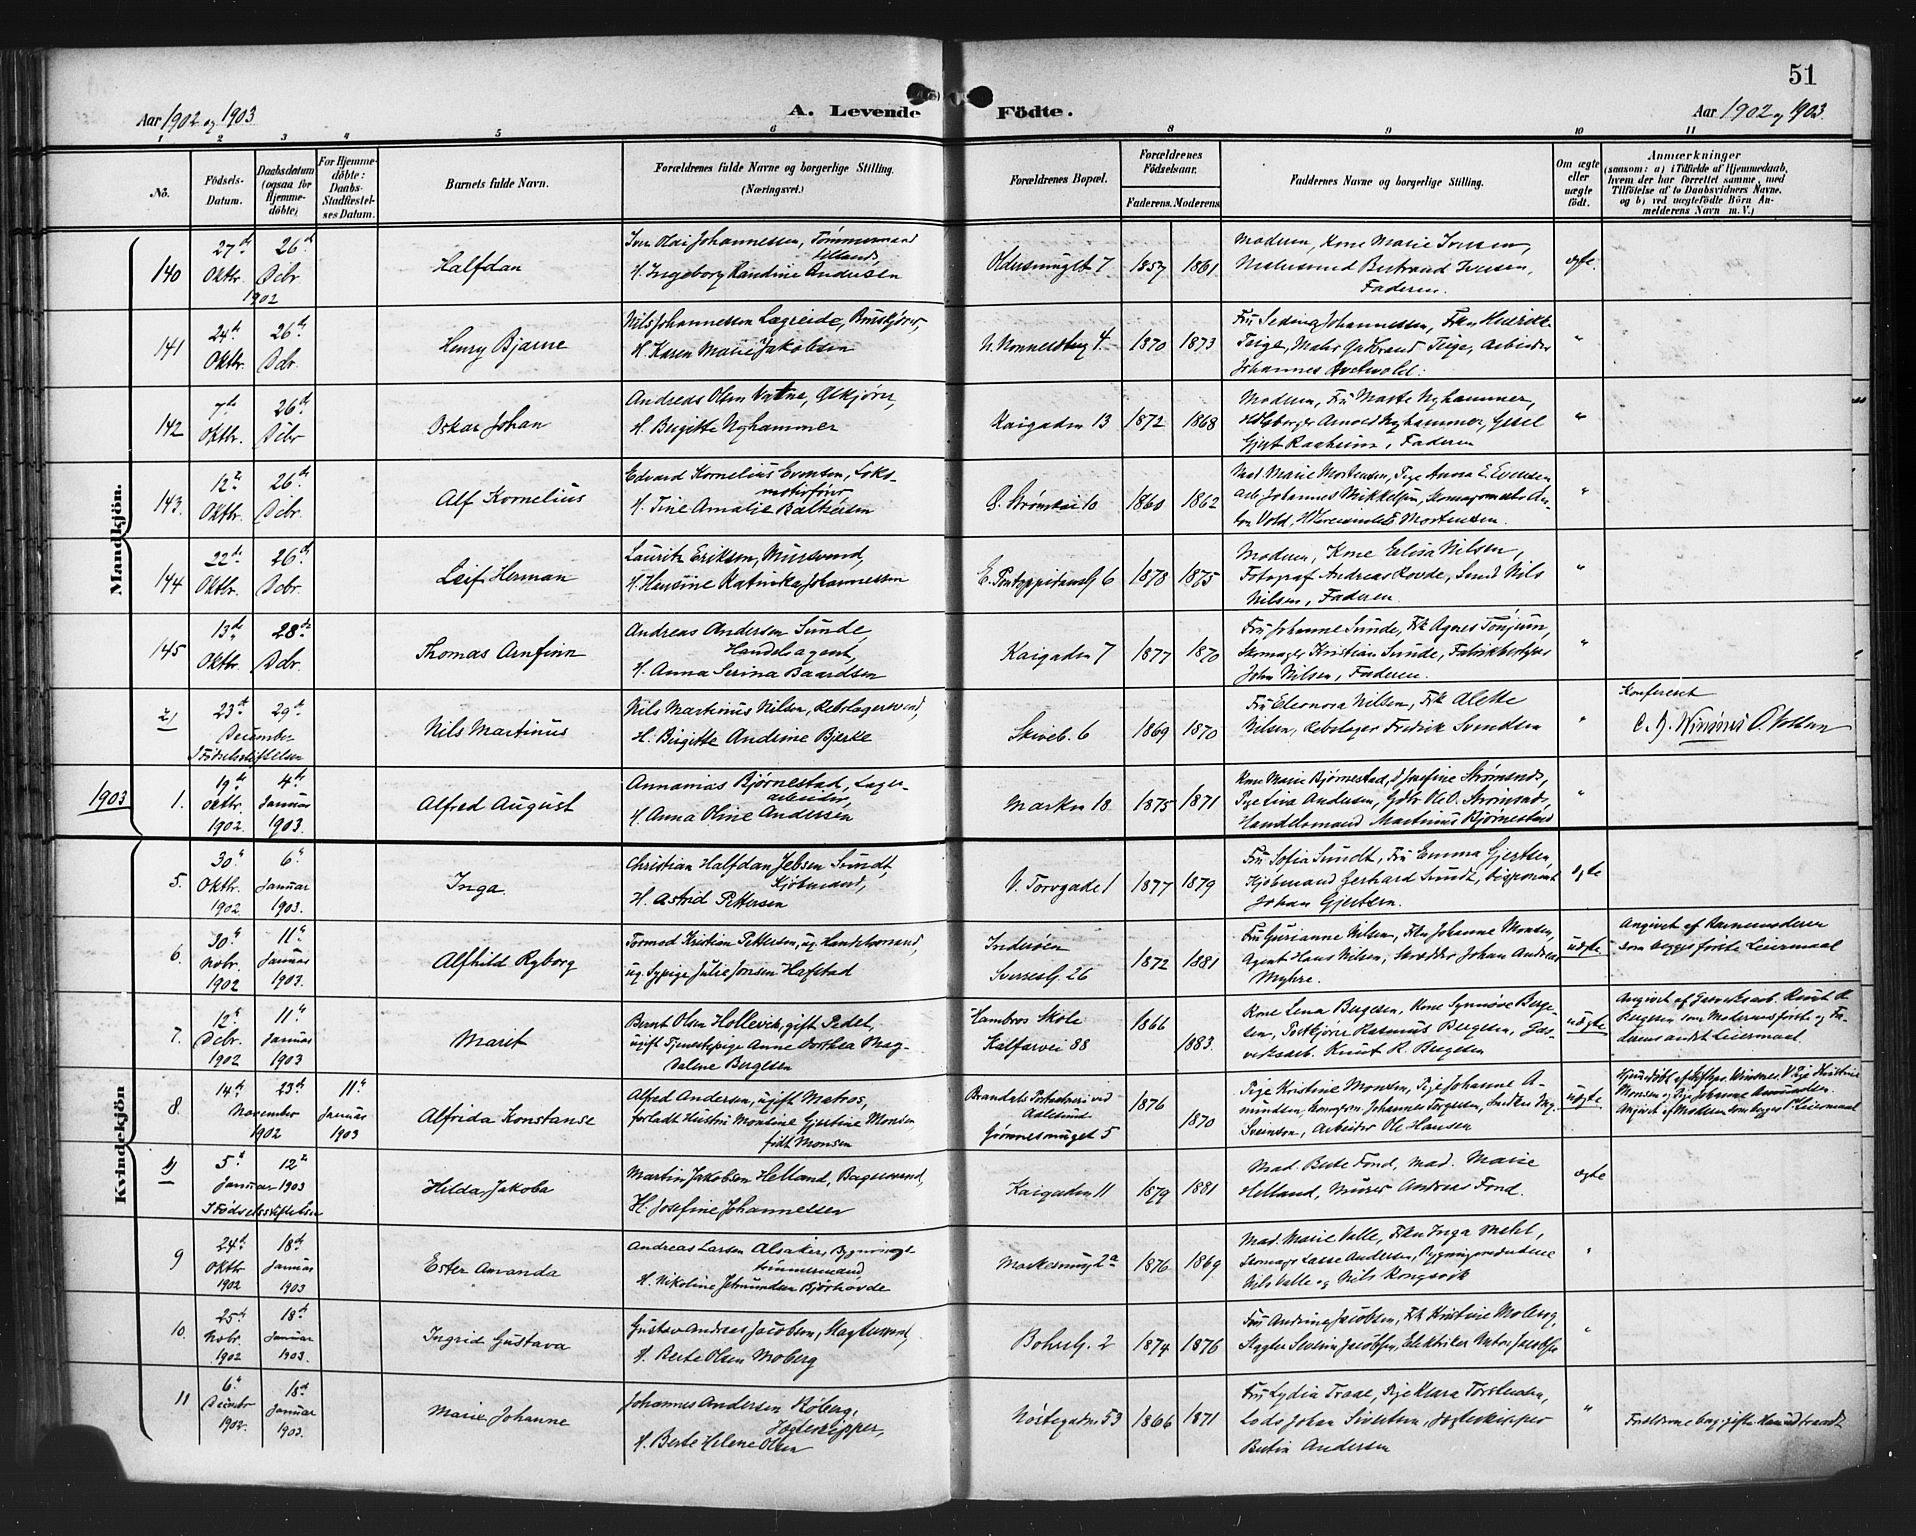 51
Aar 1902 og 1903
A. Levende Födte.
Aar 1902 og 1903.
1 2 3 4 5 6 8 9 10 11
No.
Födsels-Datum.
Daabsdatum (ogsaa for Hjemmedöbte)
For Hjemmedöbte: Daabs-Stadfæstelses Datum.
Barnets fulde Navn.
Forældrenes fulde Navne og borgerlige Stilling. (Næringsvei.)
Forældrenes Bopæl.
Forældrenes Födselsaar.
Faderens. Moderens
Faddernes Navne og borgerlige Stilling.
Om ægte eller uægte födt.
Anmærkninger
(saasom: a) i Tilfælde af Hjemmedaab, hvem der har forrettet samme, med Tilföielse af to Daabsvidners Navne. og b) ved uægtefödte Börn Anmelderens Navn m. V.)
Mandkjön.
140 27de Oktbr. 26de Decbr 1902
Halfdan
Iver Olai Johannessen, Tømmermand
H. Ingeborg Randine Andersen
Oldersmuget 7 1857 1861
Moderen, Kone Marie Iversen,
Malersvend Bertrand Iversen,
Faderen.
ægte.
141 24de Oktbr. 26de Dcbr.
Henry Bjarne
Nils Johannessen Lægreide,
H. Karen Marie Jakobsen
N. Nonneldsbug 4. 1870 1873
Johannes
"
142 7de Oktbr. 26de Dcbr
Oskar Johan
Andreas Olsen Vatne, Ølkjører,
H. Birgitte Nyhammer
Kaigaden 13 1872 1868
Moderen, Fru Marte Nyhammer,
Arnold Nyhammer,
Gjert Raaheim, Faderen
"
143. 12te Oktbr. 26de Dcbr.
Alf Kornelius
Edvard Kornelius Evensen, Lokomotivfører
H. Tine Amalie
Ø. Strømkai 10 1860 1862
Mad. Marie Mortensen, Pige Anna E. Evensen,
Arb. Johannes Mikkelsen, Skomagermester Anton Vold, Mortensen.
"
144 22de Oktbr. 26de Dcbr.
Leif Herman
Lauritz Eriksen, Mursvend,
H. Hansine Katinka Johannessen
E. Pontoppidansg 6 1878 1875
Moderen, Kone Elisa Nilsen,
Fotograf Andreas Hovde, Svend Nils
Nilsen, Faderen.
"
145 13de Oktbr. 28de Dcbr.
Thomas Arnfinn
Andreas Andersen Sunde,
Handelsagent,
H. Anna Serina Baardsen
Kaigaden 7 1877 1870
Fru Johanne Sunde, Frk Agnes Tönjum,
Skomager Kristian Sunde, Fabrikbestyrer
John Nilsen, Faderen.
"
23de 29de December
I Fødselsstiftelsen
Nils Martinus
Nils Martinus Nilsen, Rebslagersvend,
H. Birgitte Andrine Bjerke
Skiveb. 6 1869 1870
Fru Eleonora Nilsen, Frk Alette
Nilsen, Rebslager Fredrik Svendsen
"
Konfereret
1903
1. 19de Oktbr. 1902. 4de Januar 1903.
Alfred August
Annanias Bjørnestad, Lagerarbeider,
H. Anna Oline Andersen
Marken 18 1875 1871
Kone Marie Bjørnestad, d. Josefine Strømsnæs,
Pige Lina Andersen, Gdbr Ole O. Strømsnæs,
Handelsmand Martinus Bjørnestad
"
Kvindekjön
5. 30te Oktbr. 1902 6te Januar 1903.
Inga
Christian Halfdan Jebsen Sundt,
Kjøbmand,
H. Astrid Pettersen
V. Torvgade 1 1877 1879
Fru Sofia Sundt, Fru Emma Gjertsen,
Kjøbmand Gerhard Sundt, Disponent
Johan Gjertsen.
ægte
6. 30te Nobr. 1902 11te Januar 1903.
Alfhild Ryborg
Tormod Kristian Pettersen, ug. Handelsmand,
ug. Sypige Julie Jonsen Hafstad
Inderøen
Sverresg. 26 1872 1881
Fru Gurianne Nilsen, Frkn Johanne Monsen,
Agent Hans Nilsen, Skrædder Johan Andreas
Myhre.
uægte
Angivet af Barnemoderen
som begges første Leiermaal
7. 12te Dcbr. 1902 11te Januar 1903
Marit
Bernt Olsen Hollevik, gift Pedel,
ugift Tjenestepige Anne Dorthea Magdalene Bergesen
Hambros Skole
Kalfarvei 88 1866 1883.
Kone Lena Bergesen, Kone Synnøve Bergesen, Postkjører Rasmus Bergesen, Gasverksarb. Knut R. Bergesen
uægte
Angivet af Gasverksarb. Knut R.
Bergesen som Moderens første og Faderens andet Leiermaal.
8. 14de 23de November 1902 11te Januar 1903
Alfrida Konstanse
Alfred Andersen, ugift Matros,
forladt Hustru Montine Gjertine Monsen
født Monsen
Aalesund
Grønnesmuget 5 1876 1870
Pige Kristine Monsen, Pige Johanne Amundsen, Skomagersv. Johannes Torgersen,
Sveinson, Arbeider Ole Hansen
uægte
Monsen og Pige Johanne Amundsen.
Angivet af Moderen som begges Leiermaal
5te 12te Januar 1903
I Fødselsstiftelsen
Hilda Jakoba
Martin Jakobsen Helland, Bagersvend,
H. Josefine Johannessen
Kaigaden 11 1879 1881
Mad. Berte Fond, Mad. Marie
Helland, Murer Andreas Fond.
ægte
9 24de Oktbr 1902 18de Januar 1903
Ester Amanda
Andreas Larsen Alsaker, Bygningstømmermand
H. Nikoline Jetmundsen Björhovde
Markesmug 2a 1876 1869
Mad. Marie Valle, Frkn Inga Mehl,
Skomager Lasse Andersen, Bygningssnedkerne
Nils Valle og Nils Kongsvik
"
10. 25de Nobr. 1902 18de Januar 1903.
Ingrid Gustava
Gustav Andreas Jacobsen, Magtersvend,
H. Berte Olsen Moberg
Bohrsg. 2 1874 1876
Fru Andrine Jacobsen, Frk Kristine Moberg,
Slagter Severin Jacobsen, Elektriker Viktor Jacobsen
"
11 6te Decembr 1902. 18de Januar 1903.
Marie Johanne
Johannes Andersen Kölerg,
Jagteskipper,
H. Berte Helene Olsen
Nøstegaden 53 1866 1871
Fru Lydia Traae, Pige Klara Torstensen,
Lods Johan Sivertsen, Jagteskipper
Bertin Andersen
"
Forældrene